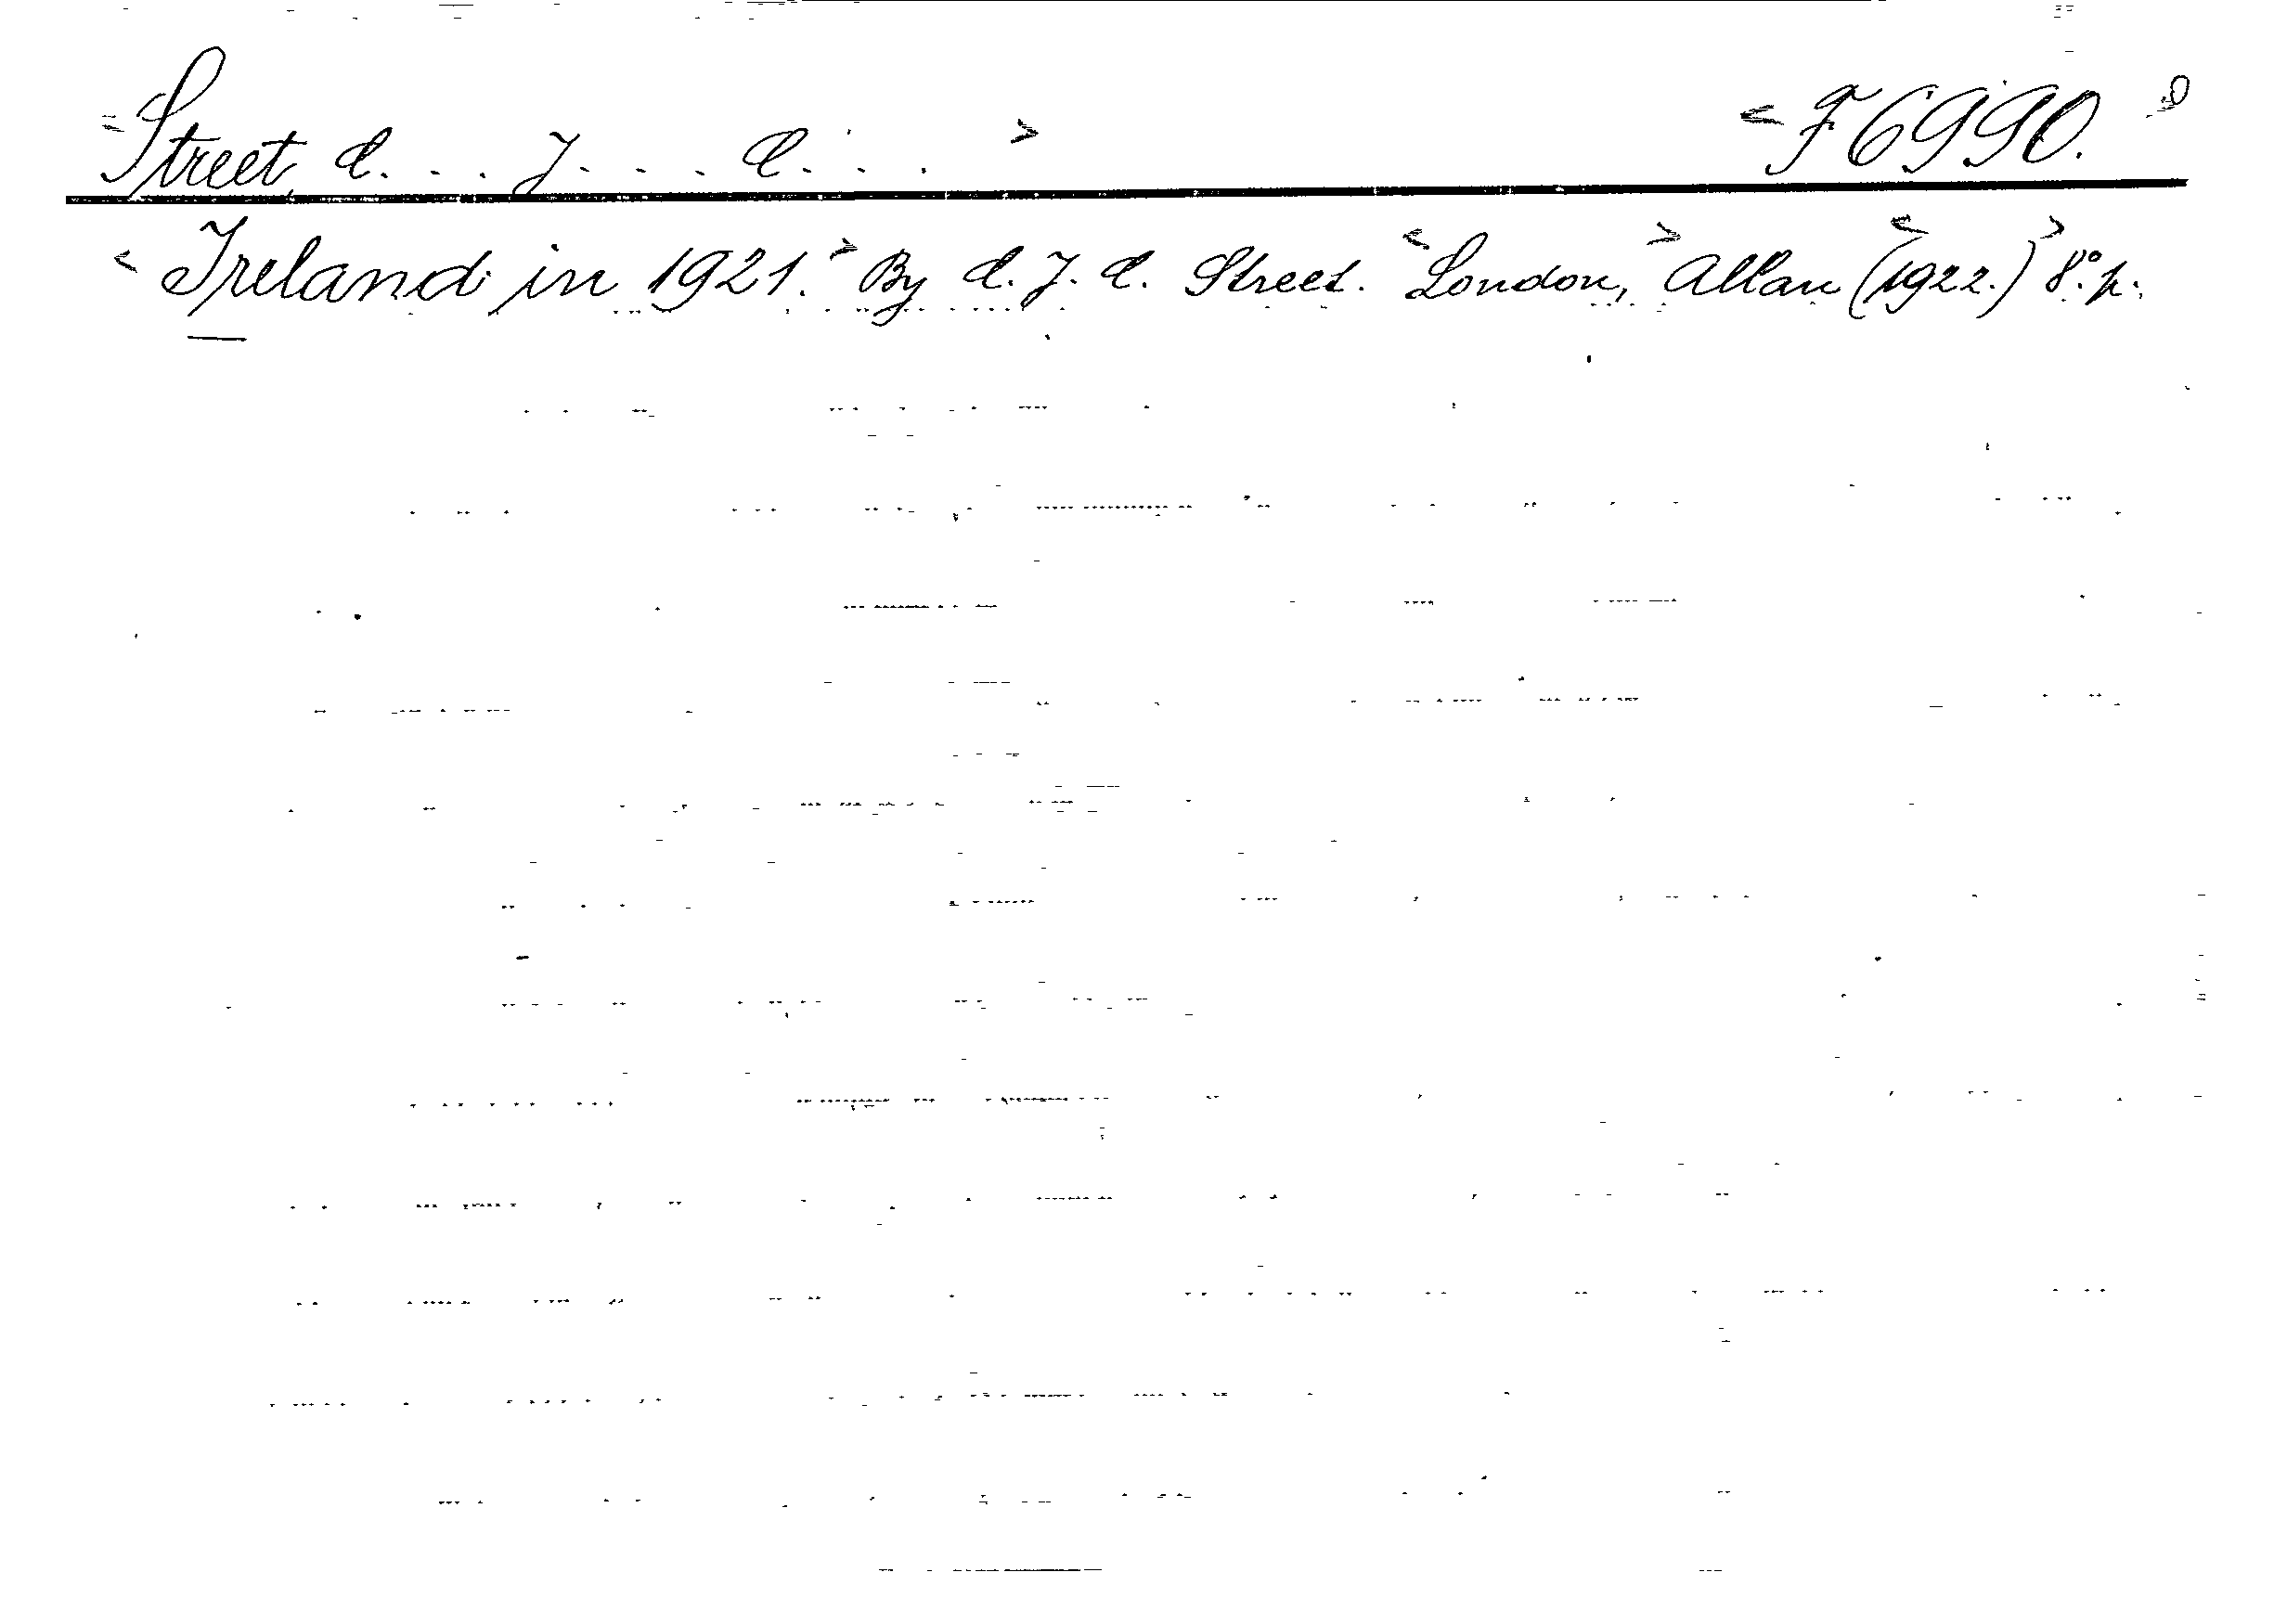 Street, C. . . J. . . C. . . F 6990.
Ireland in 1921. By C. J. C. Street. London, Allan (1922.) 8°. p.